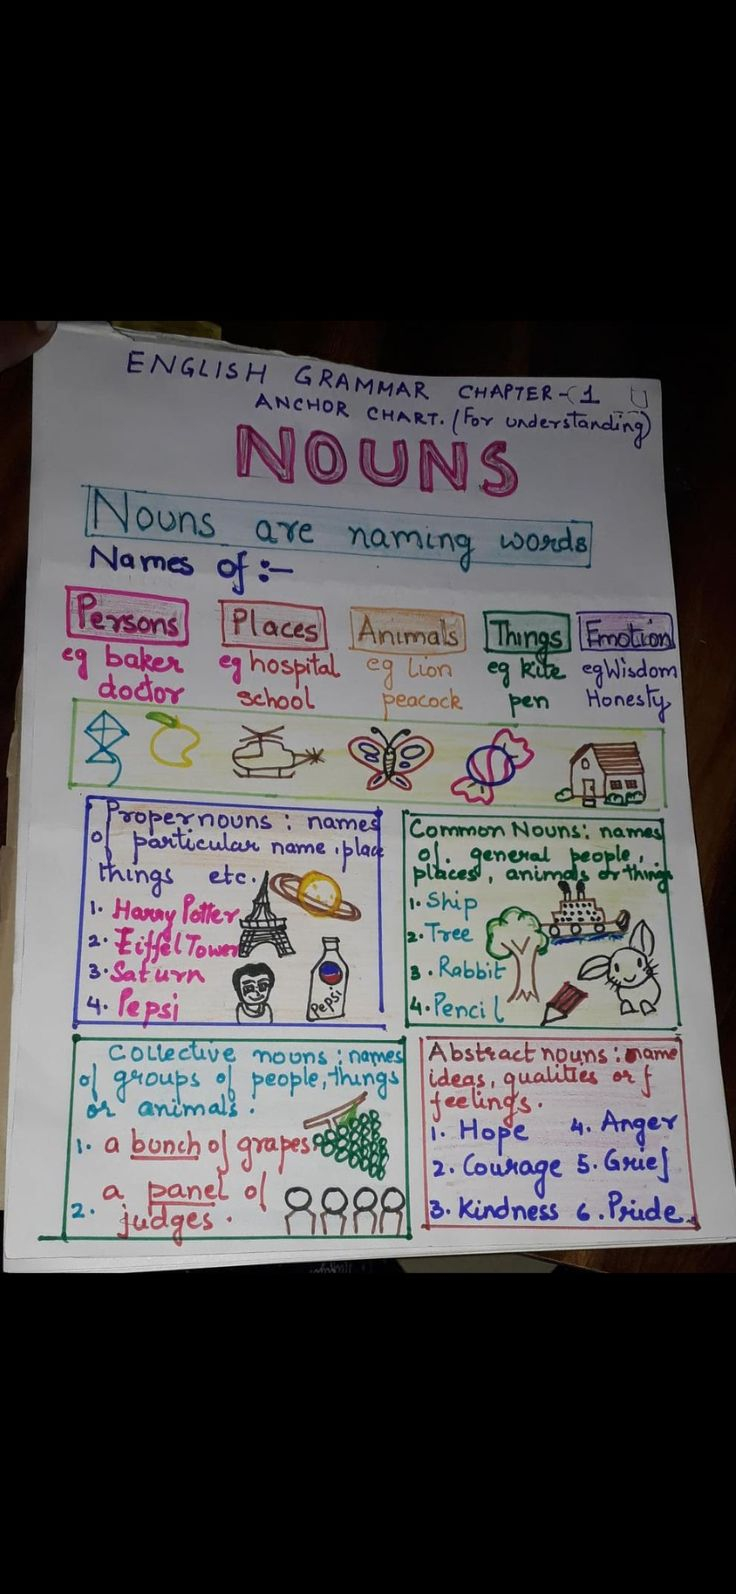 ENGLISH GRAMMAR CHAPTER-1
ANCHOR CHART. (For understanding)
NOUNS
Nouns are naming words
Names of :-
Persons Places Animals Things Emotion
eg baker eg hospital eg Lion eg kite eg Wisdom
doctor school peacock pen Honesty
Proper nouns : names
of particular name, place
things etc.
1. Harry Potter
2. Eiffel Tower
3. Saturn
4. Pepsi
Pepsi
Common Nouns: names
of. general people,
places, animals or things
1. Ship
2. Tree
3. Rabbit
4. Pencil
Collective nouns : names
of groups of people, things
or animals.
1. a bunch of grapes
2. a panel of
judges.
Abstract nouns : name
ideas, qualities or
feelings.
1. Hope 4. Anger
2. Courage 5. Grief
3. Kindness 6. Pride.